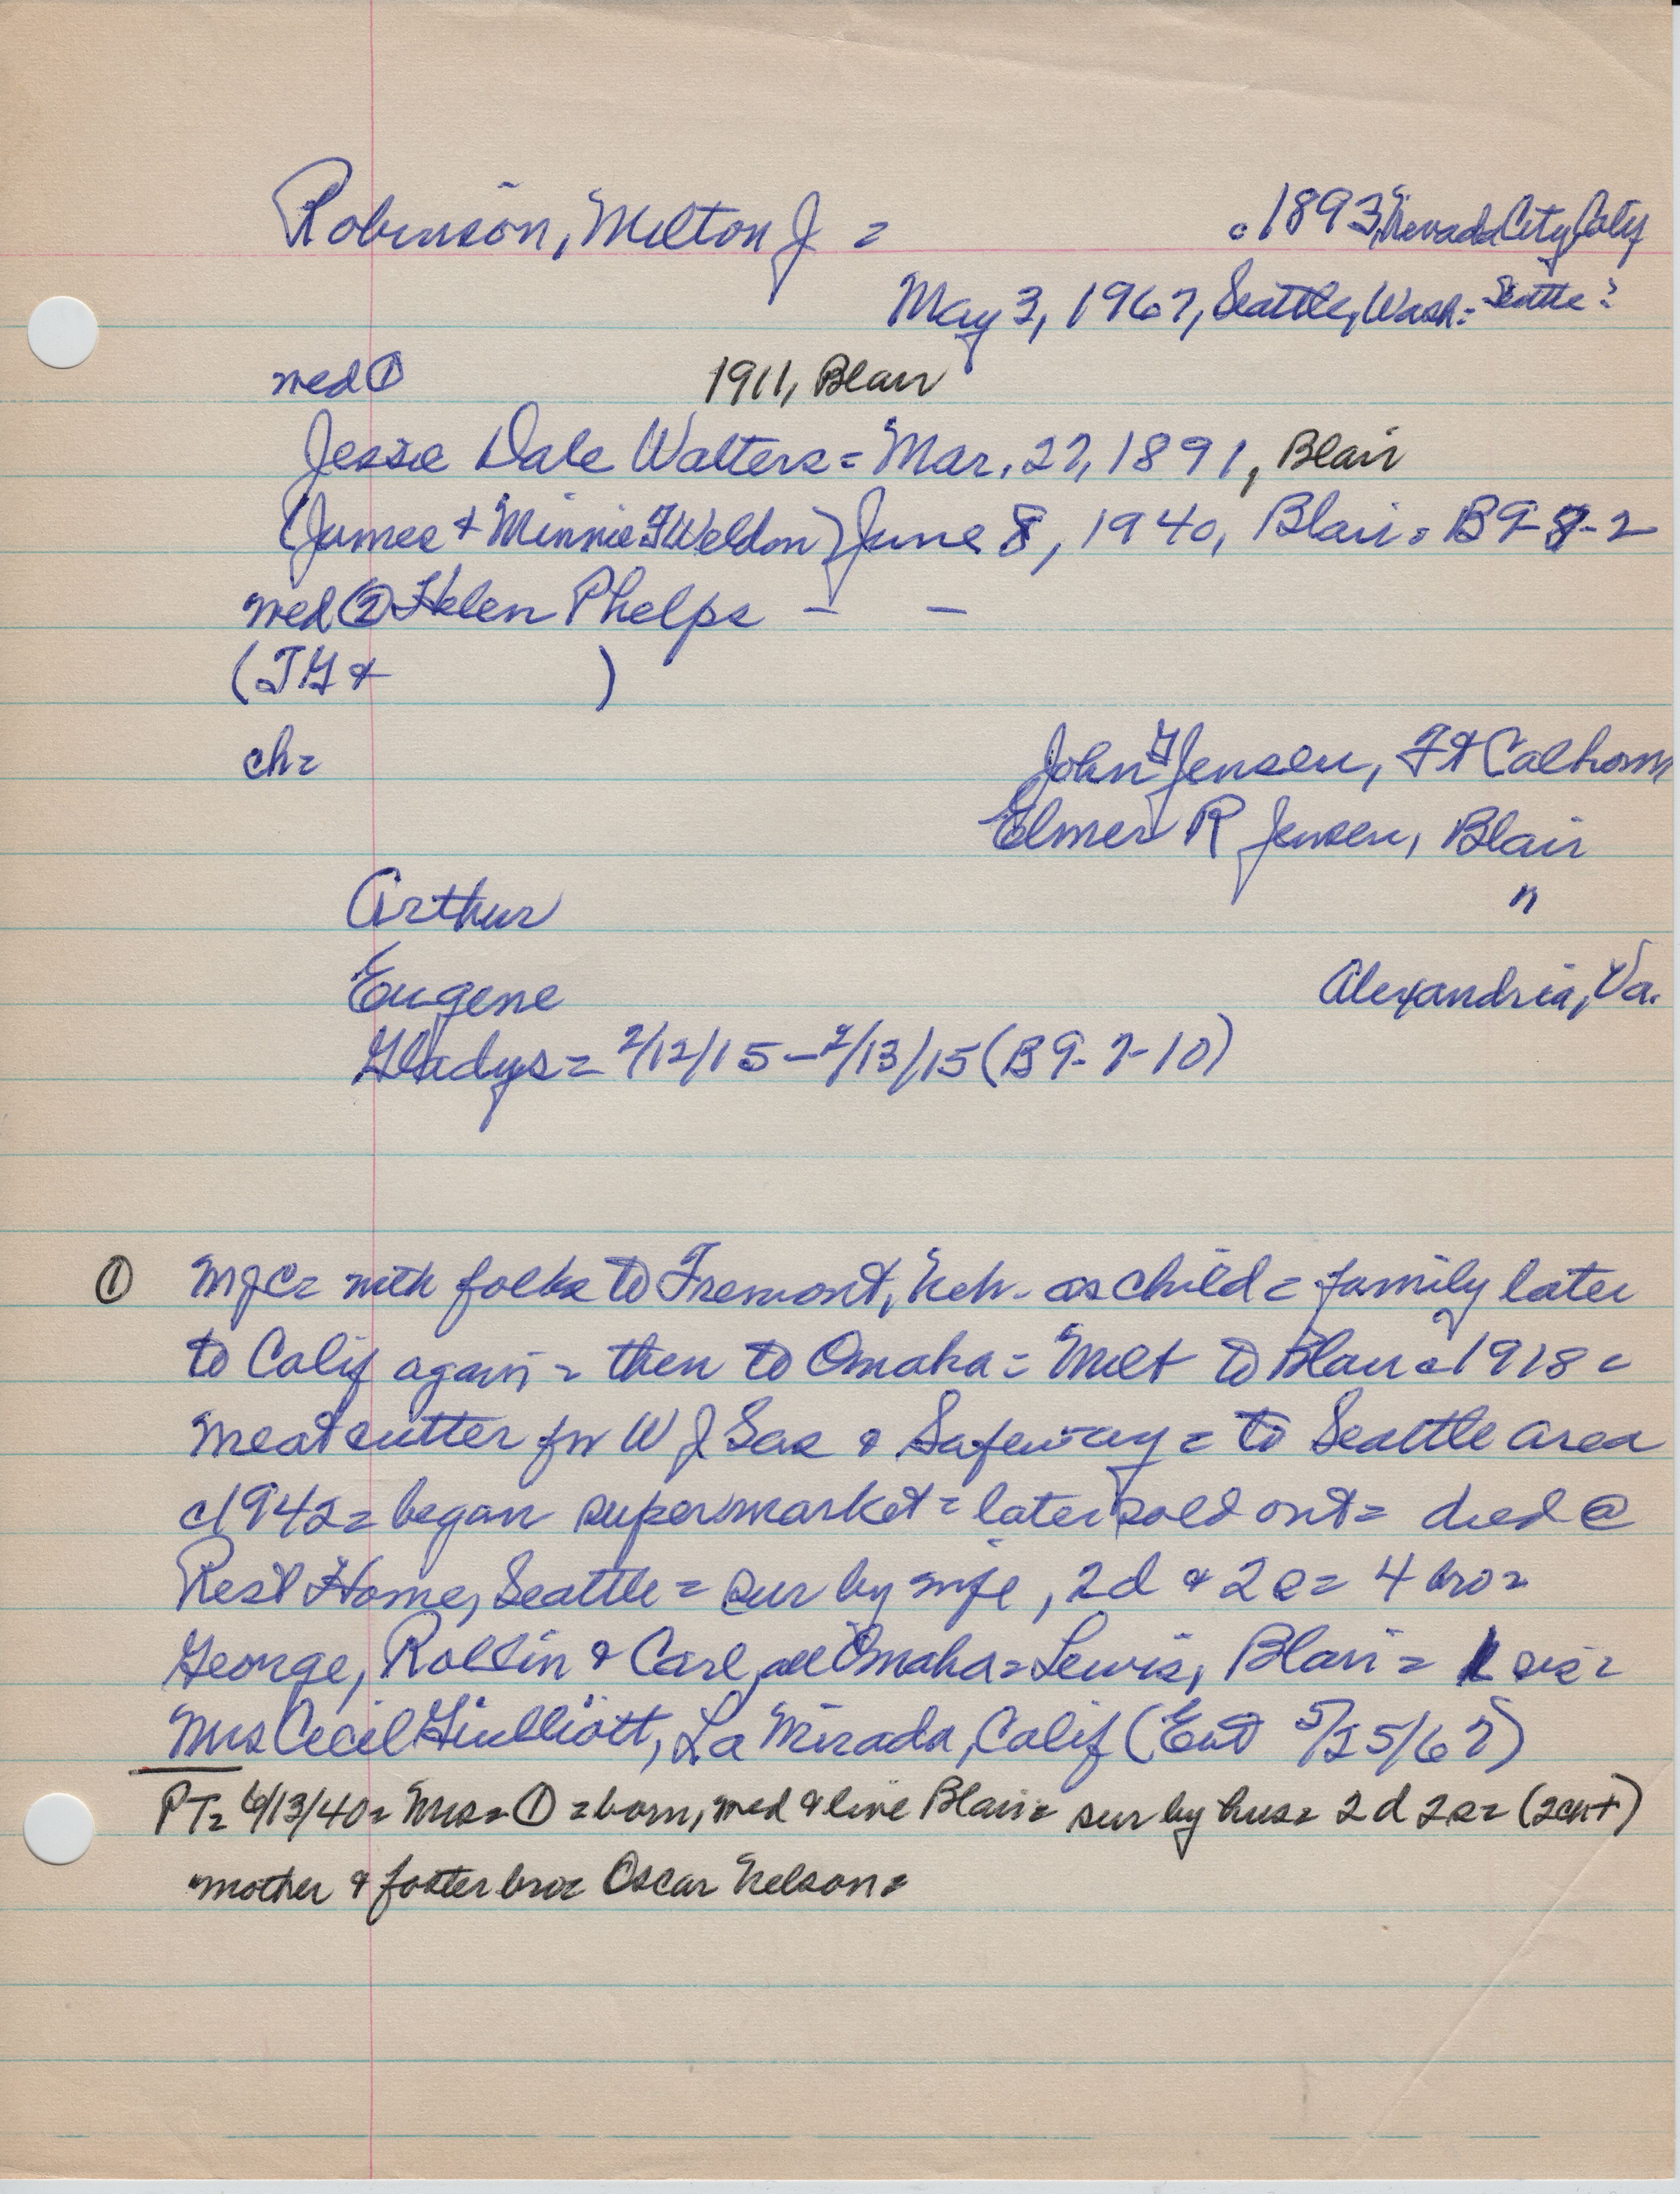 Robinson, Milton J = c 1893, Nevada City, Calif
May 3, 1967, Seattle, Wash = Seattle?
med ① 1911, Blair
Jessie Dale Walters = Mar. 27, 1891, Blair
(James & Minnie F Weldon) June 8, 1940, Blair = B9-8-2
med ② Helen Phelps - -
(J G & )
ch =
John F Jensen, Ft Calhoun
Elmer R Jensen, Blair
Arthur "
Eugene Alexandria, Va.
Gladys = 2/12/15 - 2/13/15 (B9-7-10)
① = with folks to Fremont, Neb. as child = family later
to Calif again = then to Omaha = Milt to Blair c1918 =
meatcutter for W J Sas & Safeway = to Seattle area
c1942 = began supermarket = later sold out = died @
Rest Home, Seattle = sur by wife, 2d & 2s = 4 bro =
George, Rollin & Carl, all Omaha = Lewis, Blair = 1 sis =
Mrs Cecil, La Mirada, Calif (Ent 5/25/67)
PT = 6/13/40 = Mrs = ① = born, med & live Blair = sur by hus = 2d 2s = (2ch+)
mother & foster bro = Oscar Nelson =